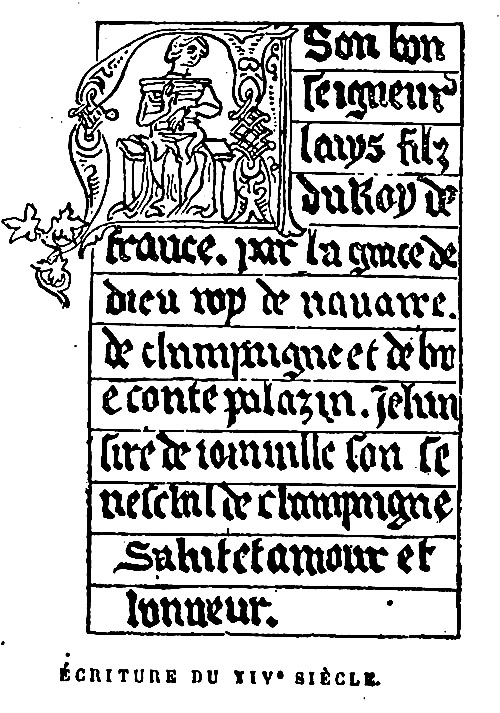 A Son bon
seigneur
looys filz
du Roy de
france. par la grace de
dieu roy de nauarre.
de champaigne et de bri
e conte palazin. Jehan
sire de ioinuille son se
neschal de champaigne
Salut et amour et
honneur.
ÉCRITURE DU XIVe SIÈCLE.